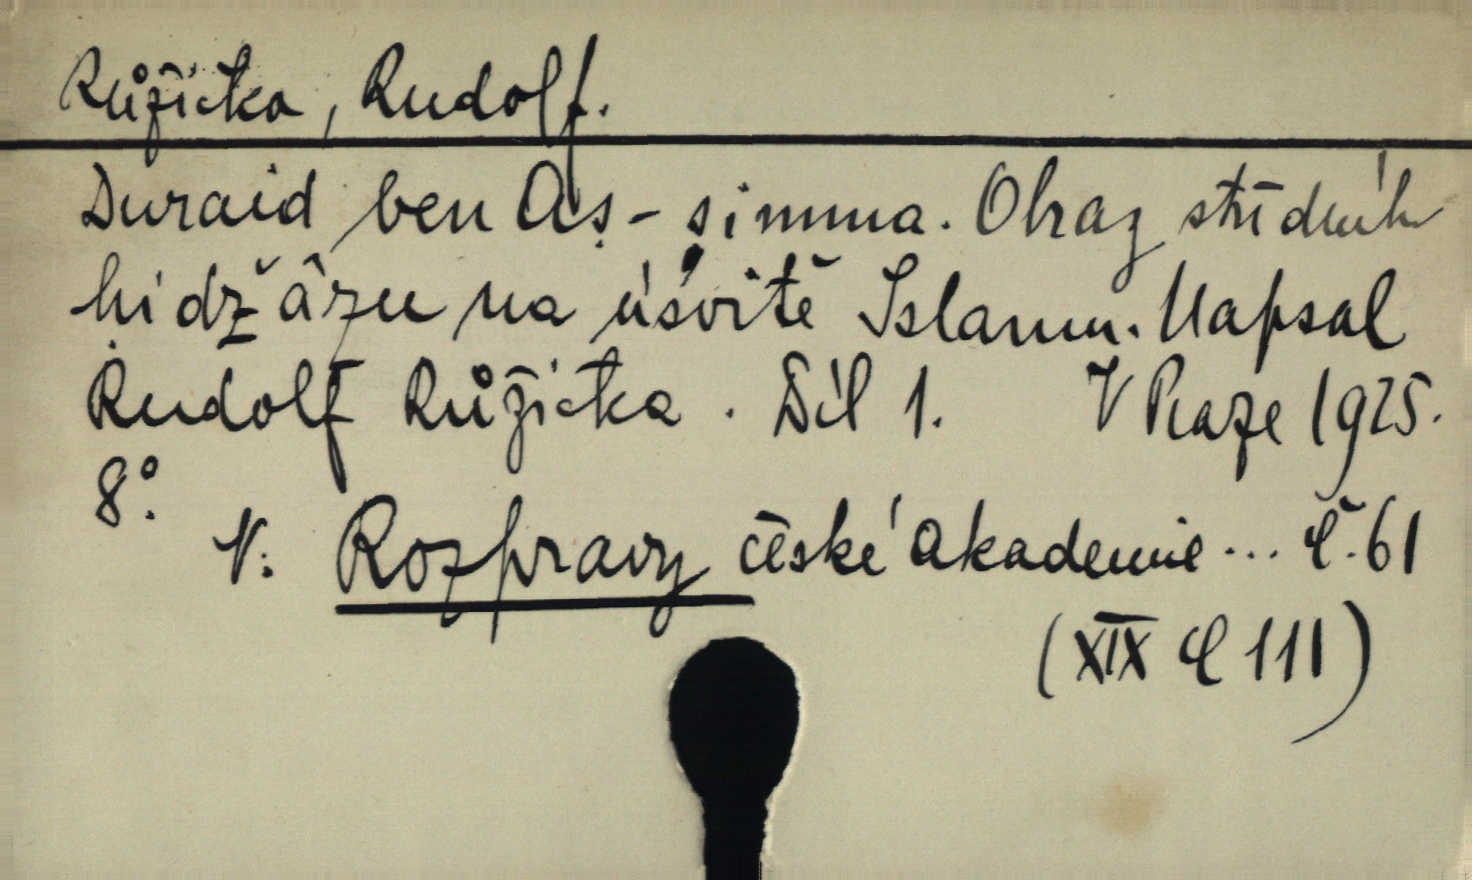 Růžička, Rudolf.
Duraid ben Aṣ-ṣimma. Obraz středního
ḥidžâzu na úsvitě Islamu. Napsal
Rudolf Růžička. Díl 1. V Praze 1925.
8°.
V: Rozpravy české akademie... č. 61
(XIX C 111)